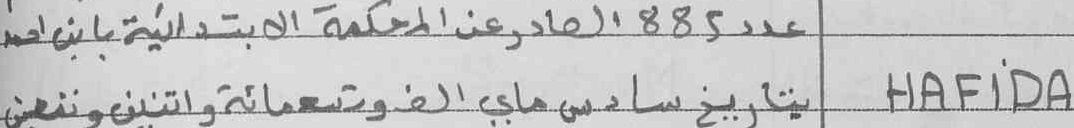 عدد 885 الصادر عن المحكمة الابتدائية بابن احمد
بتاريخ سادس ماي الف وتسعمائة واثنين وتسعين
HAFIDA